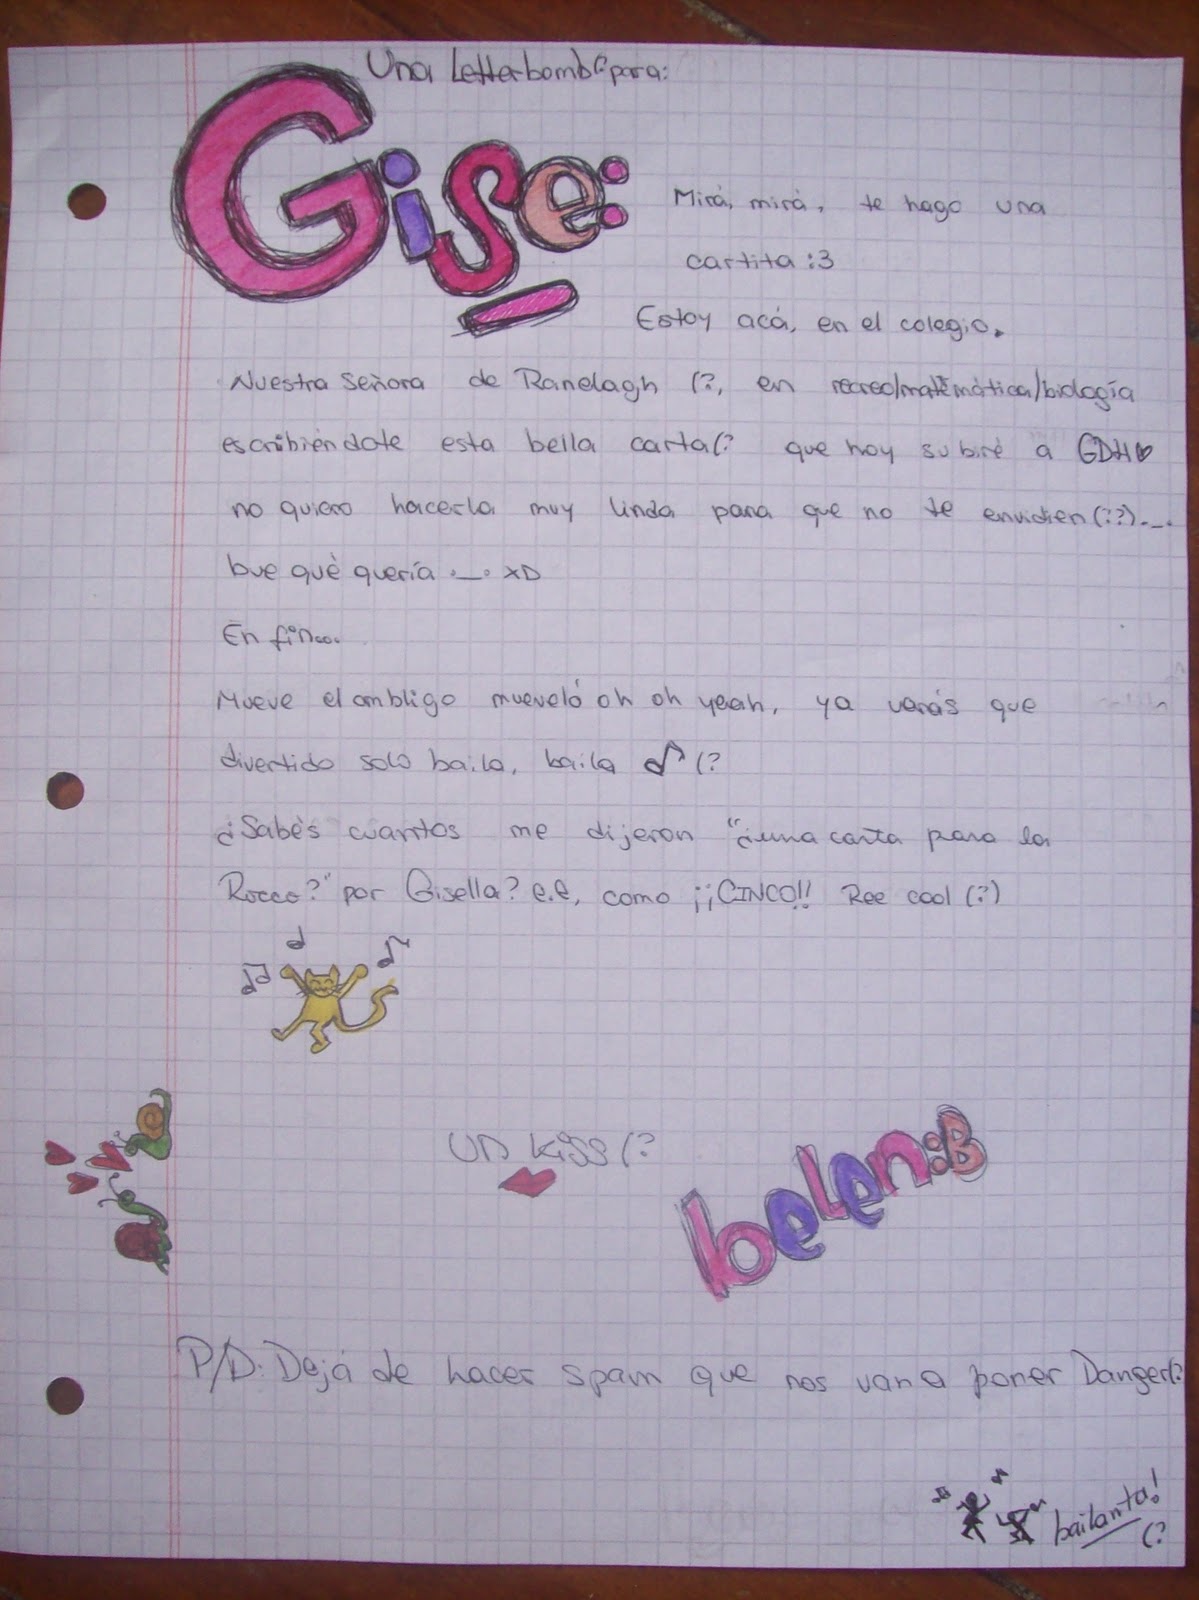 Una Letterbomb(? para:
Gise:
Mirá, mirá, te hago una
cartita :3
Estoy acá, en el colegio.
Nuestra Señora de Ranelagh (?, en recreo/matemática/biología
escribiéndote esta bella carta(? que hoy subiré a GDH♥
no quiero hacerla muy linda para que no te envidien(??)._.
bue qué quería ._. XD
En fin...
Mueve el ombligo mueveló oh oh yeah, ya verás que
divertido solo baila, baila ♪ (?
¿Sabés cuantos me dijeron "¿una carta para la
Rocco?" por Gisella? e.e, como ¡¡CINCO!! Ree cool (?)
Un kiss (?
belen:B
P/D: Dejá de hacer spam que nos van a poner Danger(?
bailanta!
(?